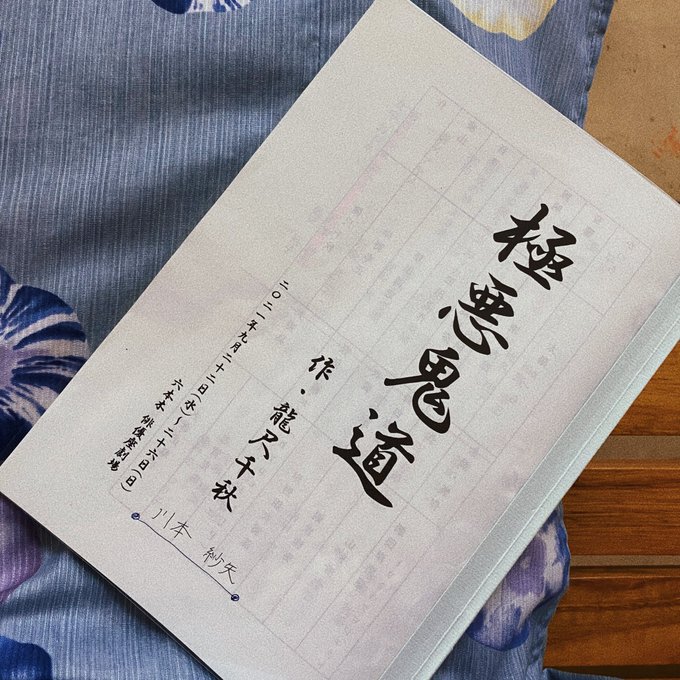 極悪鬼道
作・龍尺千秋
二〇二一年九月二十二日(水)〜二十六日(日)
六本木 俳優座劇場
川本 紗矢